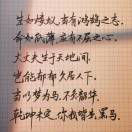 生如蝼蚁,当有鸿鹄之志。
命如纸薄,应有不屈之心。
大丈夫生于天地间,
岂能郁郁久居人下。
当以梦为马,不负韶华,
乾坤未定,你我皆是黑马。